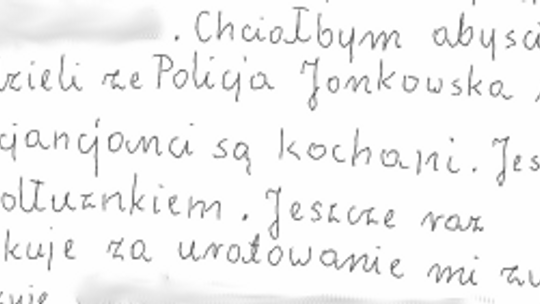 . Chciałbym abyści
zieli że Policja Jonkowska
cjancjanci są kochani. Jes
odłużnkiem. Jeszcze raz
kuje za uratowanie mi